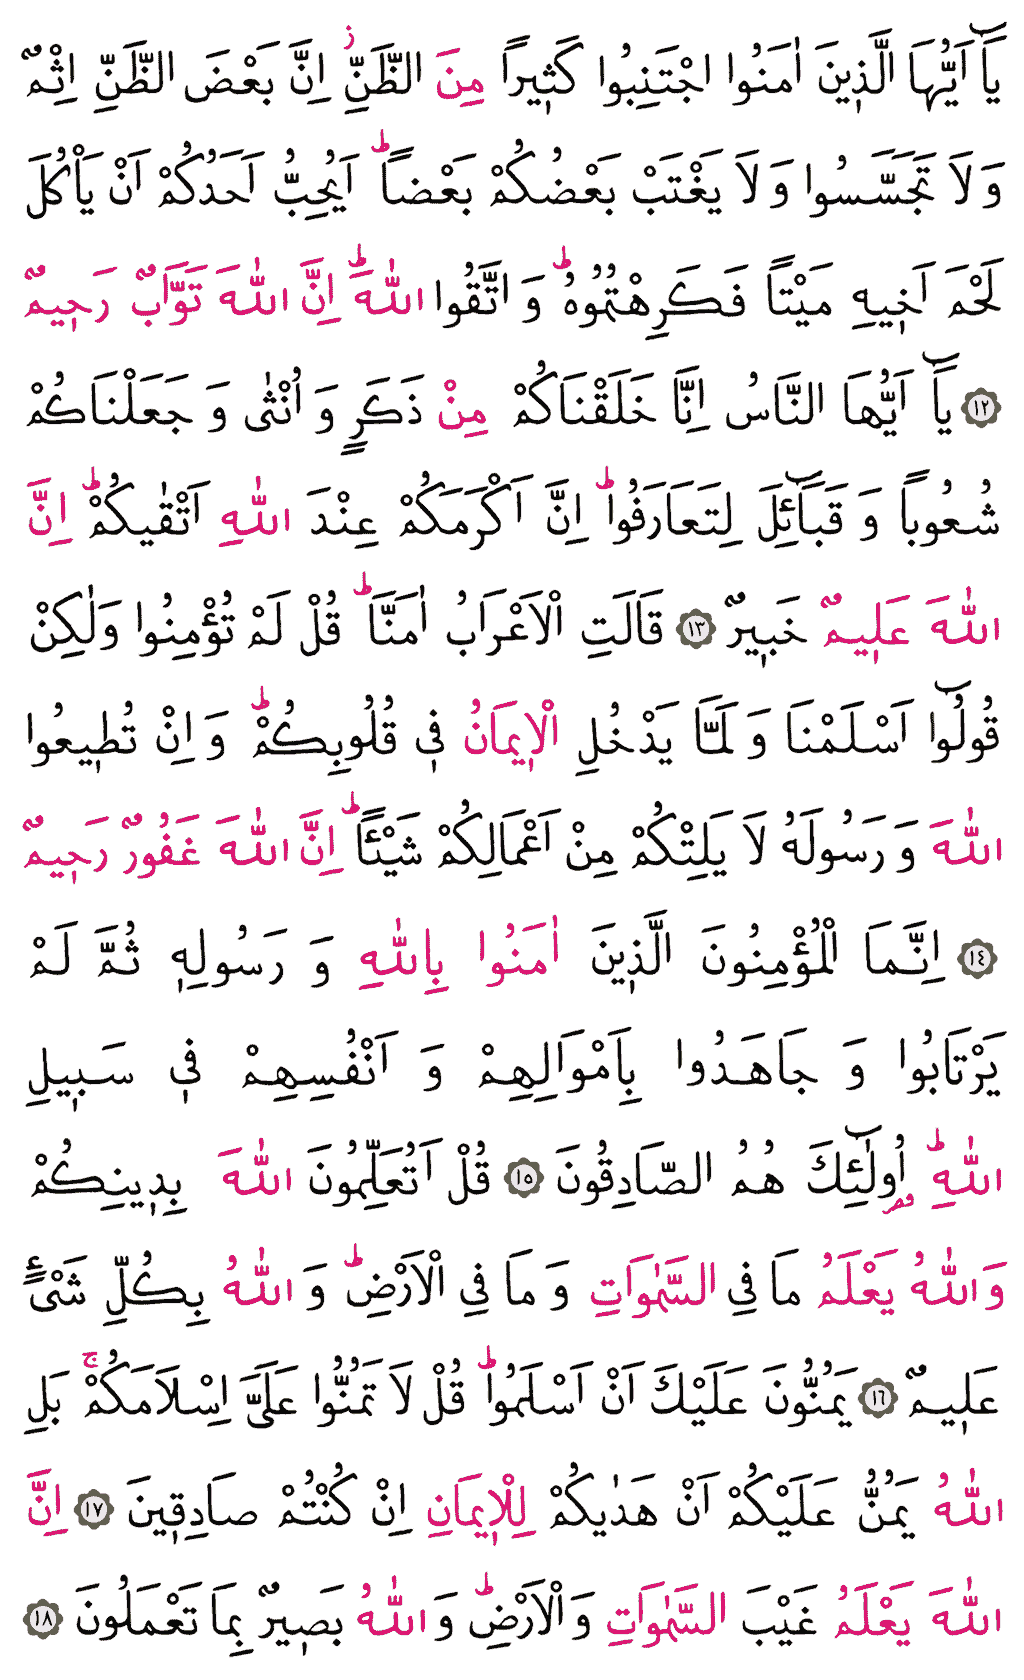 يَٓا اَيُّهَا الَّذ۪ينَ اٰمَنُوا اجْتَنِبُوا كَث۪يراً مِنَ الظَّنِّۘ اِنَّ بَعْضَ الظَّنِّ اِثْمٌ
وَلَا تَجَسَّسُوا وَلَا يَغْتَبْ بَعْضُكُمْ بَعْضاًۜ اَيُحِبُّ اَحَدُكُمْ اَنْ يَأْكُلَ
لَحْمَ اَخ۪يهِ مَيْتاً فَكَرِهْتُمُوهُۜ وَاتَّقُوا اللّٰهَۜ اِنَّ اللّٰهَ تَوَّابٌ رَح۪يمٌ
﴿١٢﴾ يَٓا اَيُّهَا النَّاسُ اِنَّا خَلَقْنَاكُمْ مِنْ ذَكَرٍ وَاُنْثٰى وَجَعَلْنَاكُمْ
شُعُوباً وَقَبَٓائِلَ لِتَعَارَفُواۜ اِنَّ اَكْرَمَكُمْ عِنْدَ اللّٰهِ اَتْقٰيكُمْۜ اِنَّ
اللّٰهَ عَل۪يمٌ خَب۪يرٌ ﴿١٣﴾ قَالَتِ الْاَعْرَابُ اٰمَنَّاۜ قُلْ لَمْ تُؤْمِنُوا وَلٰكِنْ
قُولُٓوا اَسْلَمْنَا وَلَمَّا يَدْخُلِ الْا۪يمَانُ ف۪ي قُلُوبِكُمْۜ وَاِنْ تُط۪يعُوا
اللّٰهَ وَرَسُولَهُ لَا يَلِتْكُمْ مِنْ اَعْمَالِكُمْ شَيْـٔاًۜ اِنَّ اللّٰهَ غَفُورٌ رَح۪يمٌ
﴿١٤﴾ اِنَّمَا الْمُؤْمِنُونَ الَّذ۪ينَ اٰمَنُوا بِاللّٰهِ وَرَسُولِه۪ ثُمَّ لَمْ
يَرْتَابُوا وَجَاهَدُوا بِاَمْوَالِهِمْ وَاَنْفُسِهِمْ ف۪ي سَب۪يلِ
اللّٰهِۜ اُو۬لٰٓئِكَ هُمُ الصَّادِقُونَ ﴿١٥﴾ قُلْ اَتُعَلِّمُونَ اللّٰهَ بِد۪ينِكُمْ
وَاللّٰهُ يَعْلَمُ مَا فِي السَّمٰوَاتِ وَمَا فِي الْاَرْضِۜ وَاللّٰهُ بِكُلِّ شَيْءٍ
عَل۪يمٌ ﴿١٦﴾ يَمُنُّونَ عَلَيْكَ اَنْ اَسْلَمُواۜ قُلْ لَا تَمُنُّوا عَلَيَّ اِسْلَامَكُمْۚ بَلِ
اللّٰهُ يَمُنُّ عَلَيْكُمْ اَنْ هَدٰيكُمْ لِلْا۪يمَانِ اِنْ كُنْتُمْ صَادِق۪ينَ ﴿١٧﴾ اِنَّ
اللّٰهَ يَعْلَمُ غَيْبَ السَّمٰوَاتِ وَالْاَرْضِۜ وَاللّٰهُ بَص۪يرٌ بِمَا تَعْمَلُونَ ﴿١٨﴾